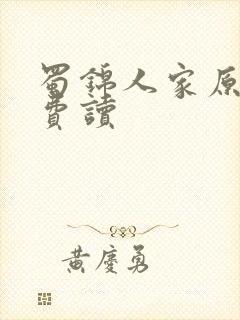 蜀錦人家原
費讀
黃慶勇